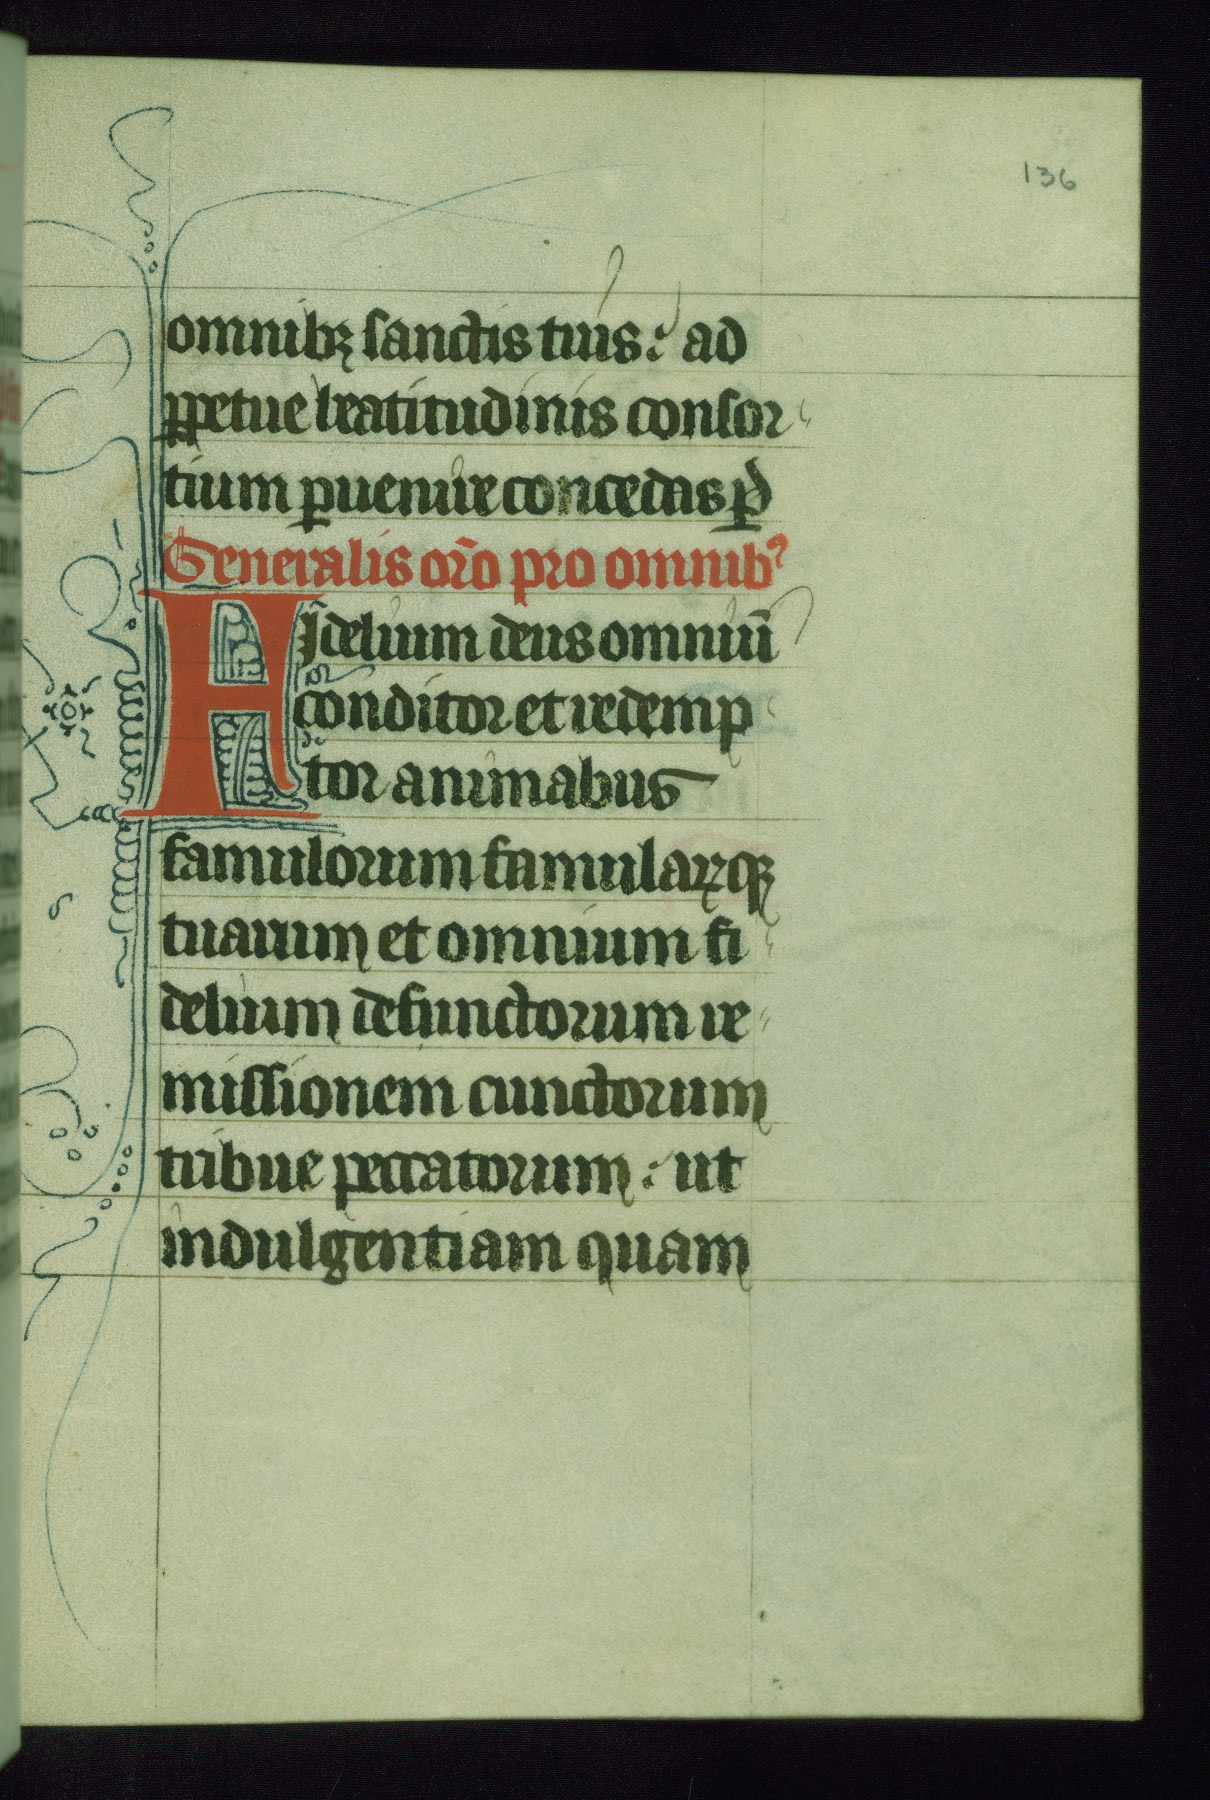 136
omnibꝫ sanctis tuis: ad
ꝑpetue beatitudinis consor
tium ꝑuenire concedas ꝑ d
Generalis or̄o pro omnibꝰ
FIdelium deus omniū
conditor et redemp
tor animabus
famulorum famularꝝqꝫ
tuarum et omnium fi
delium defunctorum re
missionem cunctorum
tribue peccatorum: ut
indulgentiam quam